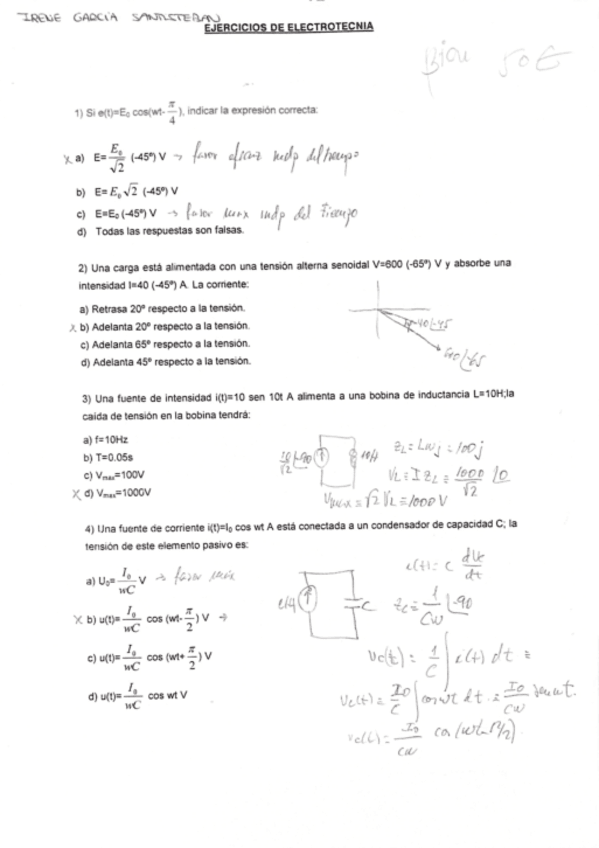 IRENE GARCÍA SANTISTEBAN
EJERCICIOS DE ELECTROTECNIA
Bien 50€
1) Si e(t)=E₀ cos(wt-π/4), indicar la expresión correcta:
X a) E=E₀/√2 (-45º) V → eficaz indp del tiempo
b) E=E₀√2 (-45º) V
c) E=E₀ (-45º) V → max indp del tiempo
d) Todas las respuestas son falsas.
2) Una carga está alimentada con una tensión alterna senoidal V=600 (-65º) V y absorbe una
intensidad I=40 (-45º) A. La corriente:
a) Retrasa 20º respecto a la tensión.
X b) Adelanta 20º respecto a la tensión.
c) Adelanta 65º respecto a la tensión.
d) Adelanta 45º respecto a la tensión.
40∠-45
∠-65
3) Una fuente de intensidad i(t)=10 sen 10t A alimenta a una bobina de inductancia L=10H;la
caída de tensión en la bobina tendrá:
a) f=10Hz
b) T=0.05s
c) Vmax=100V
X d) Vmax=1000V
10/√2 ∠-90
10H
ZL = Lωj = 100j
VL = I ZL = 1000/√2 ∠0
Vmax = √2 VL = 1000V
4) Una fuente de corriente i(t)=I₀ cos wt A está conectada a un condensador de capacidad C; la
tensión de este elemento pasivo es:
a) U₀=I₀/wC V → max
X b) u(t)=I₀/wC cos (wt-π/2) V →
c) u(t)=I₀/wC cos (wt+π/2) V
d) u(t)=I₀/wC cos wt V
C
i(t) = C duc/dt
Zc = 1/Cω ∠-90
Uc(t) = 1/C ∫ i(t) dt =
Uc(t) = I₀/C ∫ cos wt dt = I₀/Cω sen wt.
Uc(t) = I₀/Cω cos (wt-π/2)